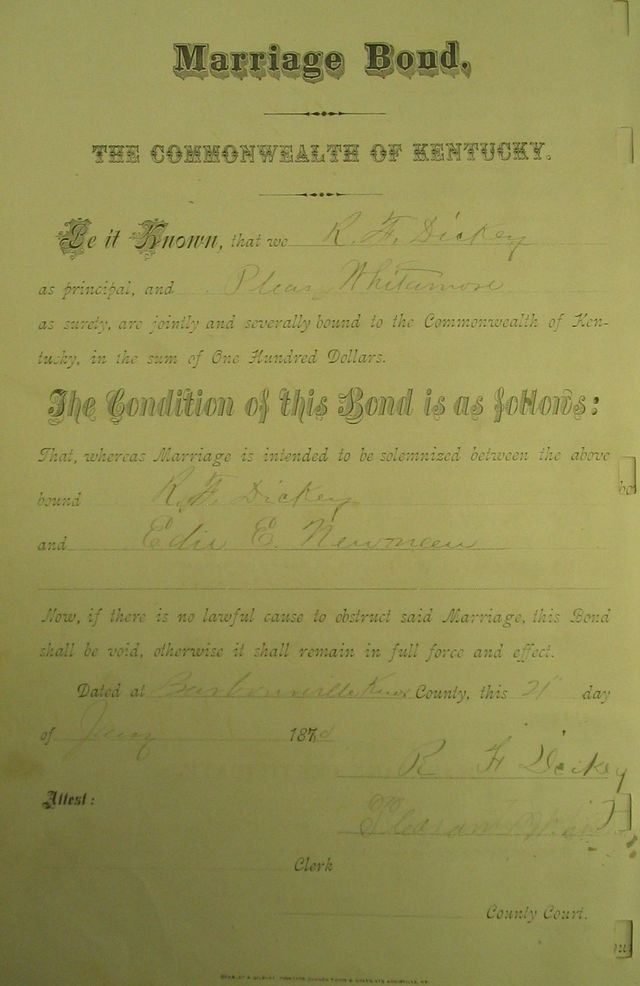 Marriage Bond,
THE COMMONWEALTH OF KENTUCKY.
Be it Known, that we R. F. Dickey
as principal, and Pleas Whitamore
as surety, are jointly and severally bound to the Commonwealth of Ken-
tucky, in the sum of One Hundred Dollars.
The Condition of this Bond is as follows:
That, whereas Marriage is intended to be solemnized between the above
bound R. F. Dickey
and Edie E.
Now, if there is no lawful cause to obstruct said Marriage, this Bond
shall be void, otherwise it shall remain in full force and effect.
Dated at Barbourville Knox County, this 21 day
of 187
R F Dickey
Attest:
Clerk
County Court.